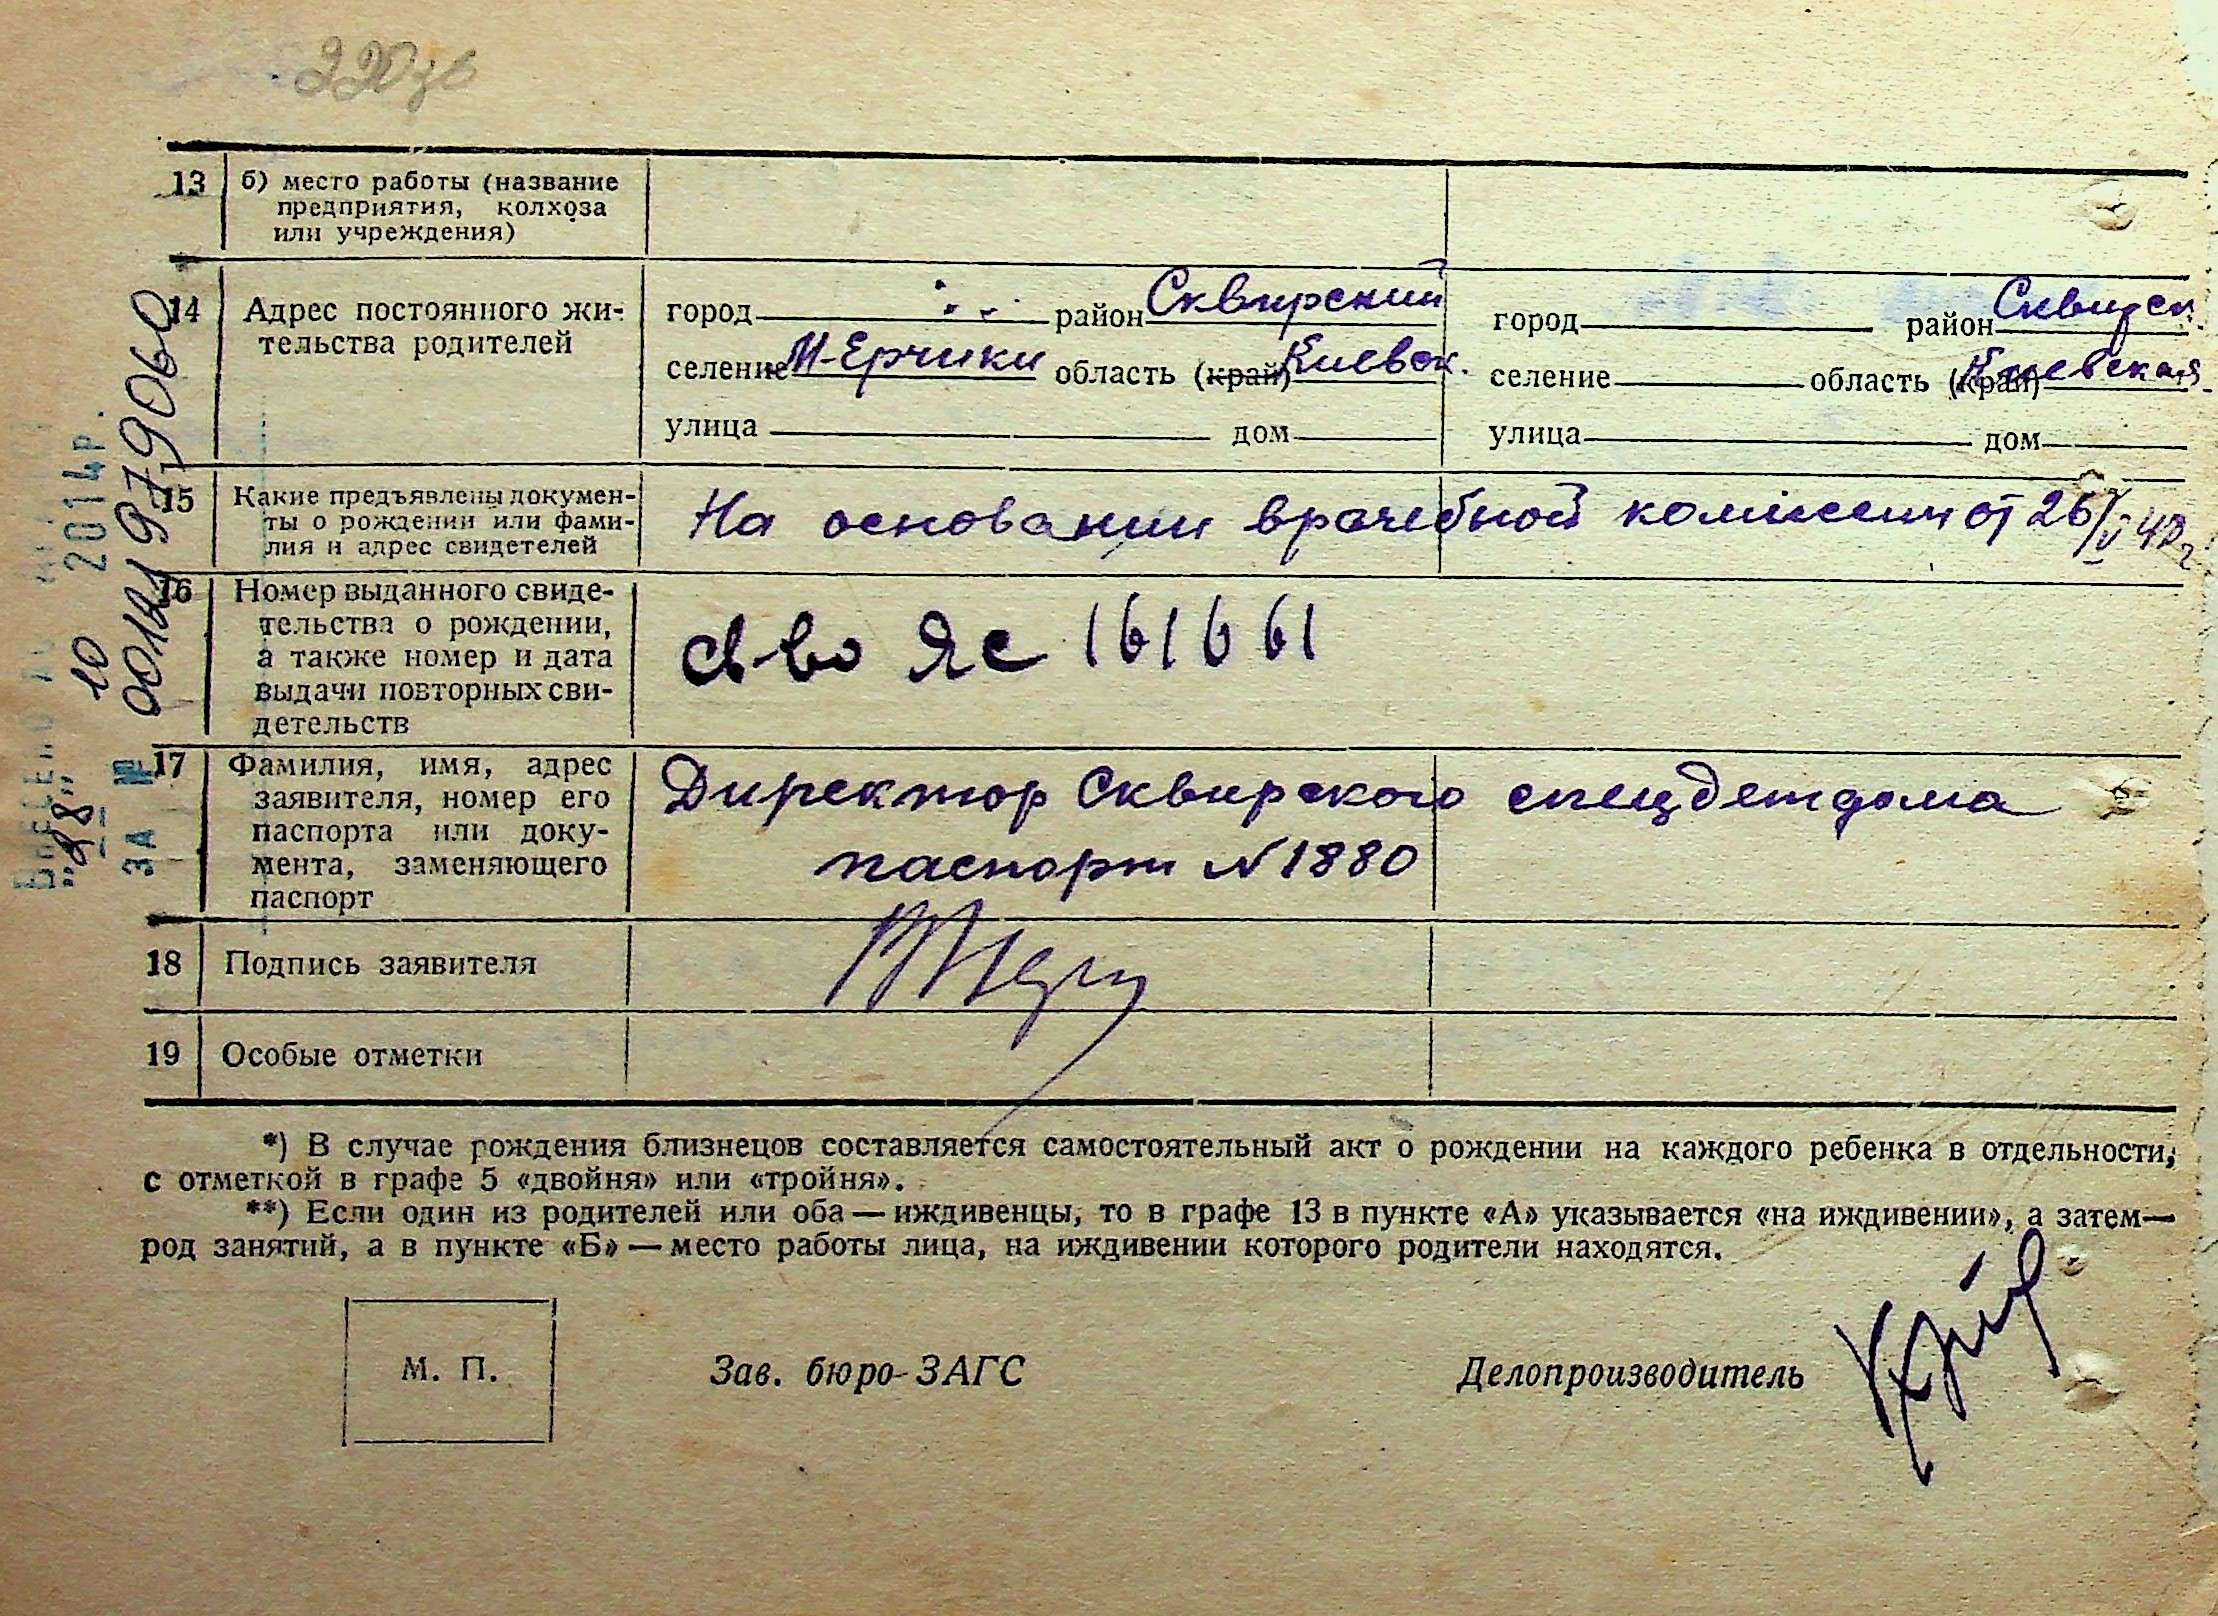 13 б) место работы (название
предприятия, колхоза
или учреждения)
14 Адрес постоянного жи-
тельства родителей
город район Сквирский
селение М-Ерчики область (край) Киевск.
улица дом
город район Сквирск.
селение область (край) Киевская
улица дом
15 Какие предъявлены докумен-
ты о рождении или фами-
лия и адрес свидетелей
На основании врачебной комиссии от 26/V
16 Номер выданного свиде-
тельства о рождении,
а также номер и дата
выдачи повторных сви-
детельств
св-во Яс 161661
17 Фамилия, имя, адрес
заявителя, номер его
паспорта или доку-
мента, заменяющего
паспорт
Директор Сквирского спецдетдома
паспорт N 1880
18 Подпись заявителя
19 Особые отметки
*) В случае рождения близнецов составляется самостоятельный акт о рождении на каждого ребенка в отдельности,
с отметкой в графе 5 «двойня» или «тройня».
**) Если один из родителей или оба — иждивенцы, то в графе 13 в пункте «А» указывается «на иждивении», а затем—
род занятий, а в пункте «Б» — место работы лица, на иждивении которого родители находятся.
М. П.
Зав. бюро ЗАГС
Делопроизводитель
"28" 10 2014р.
ЗА №